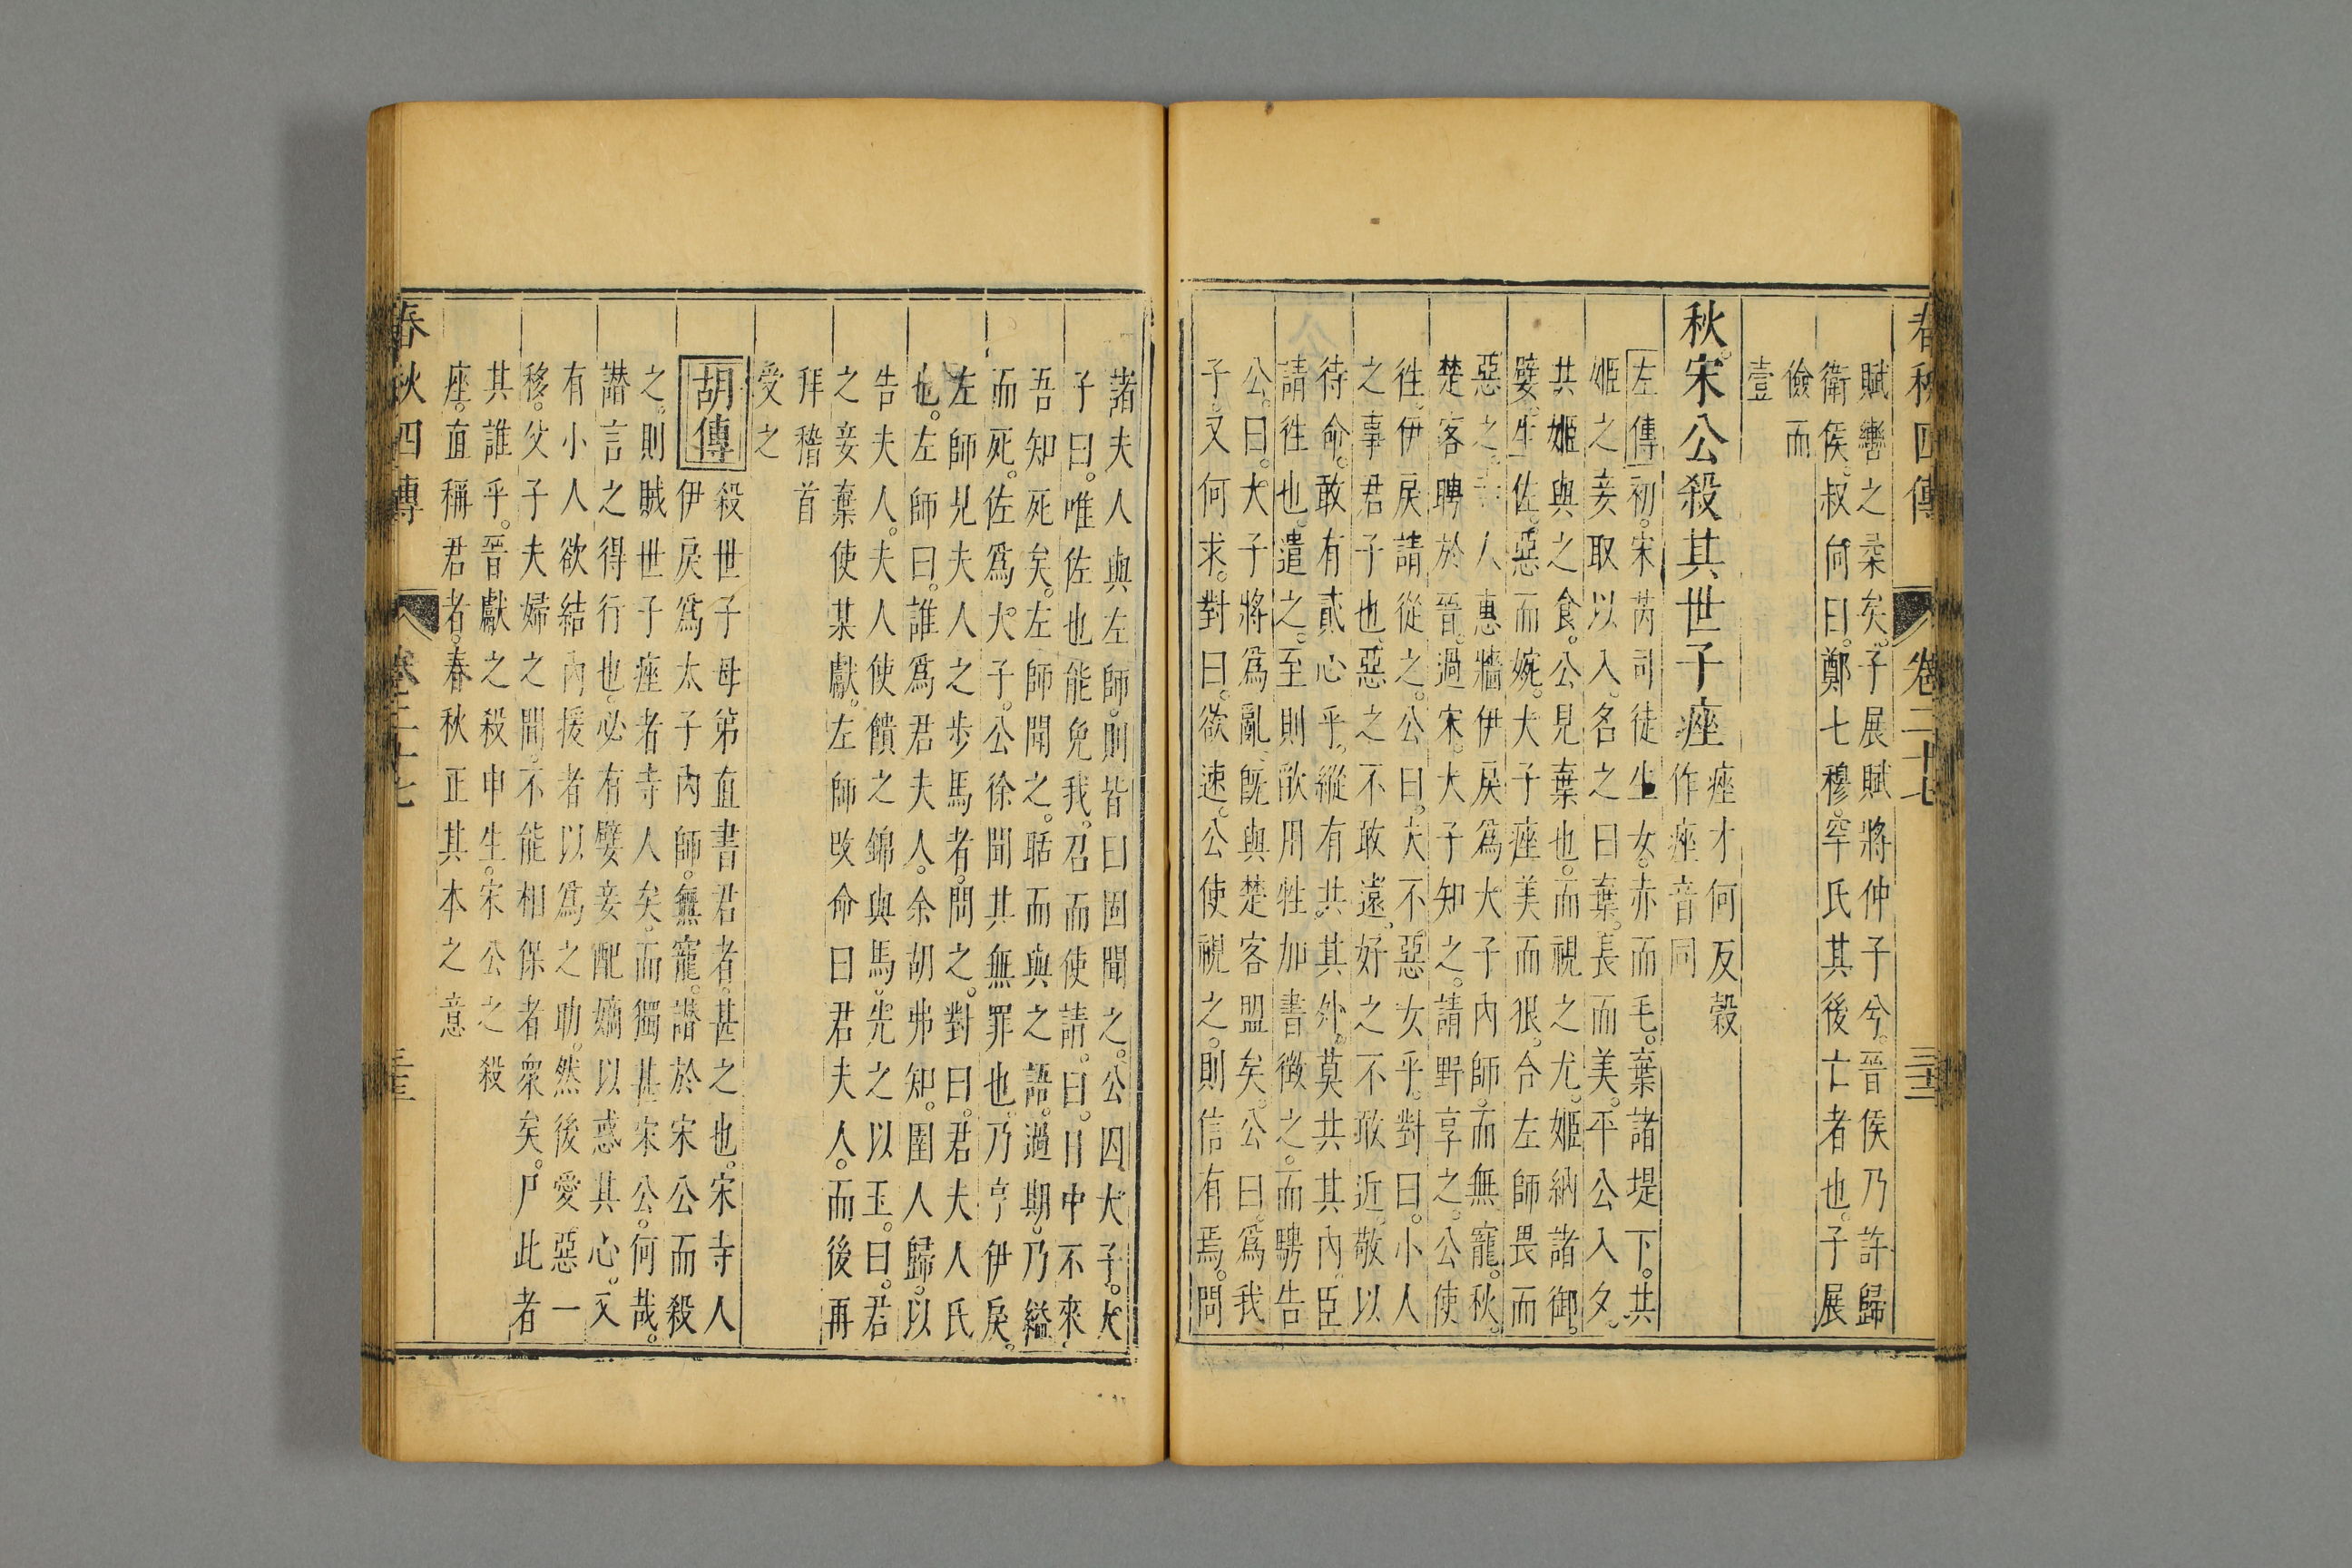 春秋四傳
卷二十七
三十二
賦轡之柔矣。子展賦將仲子兮。晉侯乃許歸
衛侯。叔向曰。鄭七穆。罕氏其後亡者也。子展
儉而
壹
秋。宋公殺其世子痤
痤才何反穀
作座音同
左傳初。宋芮司徒生女。赤而毛。棄諸堤下。共
姬之妾取以入。名之曰棄。長而美。平公入夕。
共姬與之食。公見棄也。而視之尤。姬納諸御。
嬖。生佐。惡而婉。大子痤美而狠。合左師畏而
惡之。寺人惠牆伊戾爲大子內師。而無寵。秋。
楚客聘於晉。過宋。大子知之。請野享之。公使
往。伊戾請從之。公曰。夫不惡女乎。對曰。小人
之事君子也。惡之不敢遠。好之不敢近。敬以
待命。敢有貳心乎。縱有共。其外。莫共其內。臣
請往也。遣之。至則欿用牲加書徵之。而騁告
公。曰。大子將爲亂。旣與楚客盟矣。公曰。爲我
子。又何求。對曰。欲速。公使視之。則信有焉。問
諸夫人與左師。則皆曰固聞之。公囚大子。大
子曰。唯佐也能免我。召而使請。曰。日中不來。
吾知死矣。左師聞之。聒而與之語。過期。乃縊
而死。佐爲大子。公徐聞其無罪也。乃亨伊戾。
左師見夫人之步馬者。問之。對曰。君夫人氏
也。左師曰。誰爲君夫人。余胡弗知。圉人歸。以
告夫人。夫人使饋之錦與馬。先之以玉。曰。君
之妾棄使某獻。左師改命曰。君夫人。而後再
拜稽首
受之
胡傳
殺世子母弟直書君者。甚之也。宋寺人
伊戾爲太子內師。無寵。譖於宋公而殺
之。則賊世子痤者寺人矣。而獨甚宋公。何哉。
譖言之得行也。必有嬖妾配嫡以惑其心。又
有小人欲結內援者以爲之助。然後愛惡一
移。父子夫婦之間。不能相保者衆矣。尸此者
其誰乎。晉獻之殺申生。宋公之殺
痤。直稱君者。春秋正其本之意
春秋四傳
卷二十七
三十三